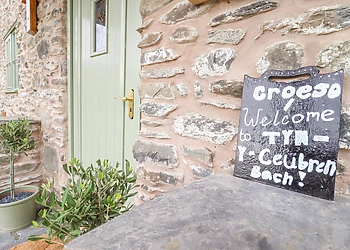 Croeso
Y
Welcome
to TYM-
Y-Ceubren
Bach!